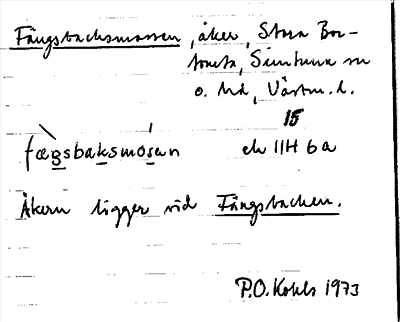 Fängsbacksmossen, åker, Stora Bor-
tomta, Simtuna sn
o. hd, Västm. l.
15
fæg̲sbak̲smos̲an ek 11H 6a
Åkern ligger vid Fängsbacken.
P.O. Kohls 1973